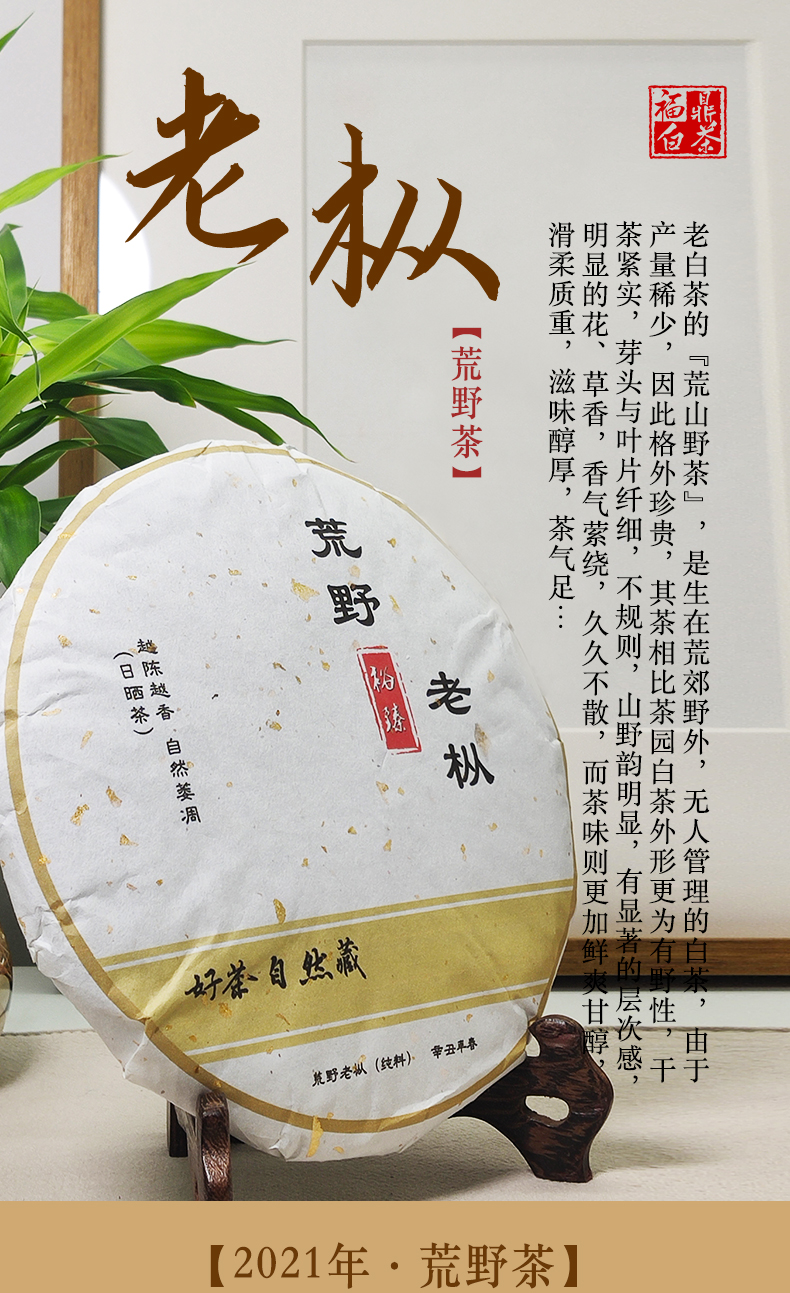 老枞
福鼎
白茶
【荒野茶】
老白茶的『荒山野茶』，是生在荒郊野外，无人管理的白茶，由于
产量稀少，因此格外珍贵，其茶相比茶园白茶外形更为有野性，干
茶紧实，芽头与叶片纤细，不规则，山野韵明显，有显著的层次感，
明显的花、草香，香气萦绕，久久不散，而茶味则更加鲜爽甘醇，
滑柔质重，滋味醇厚，茶气足…
荒野
裕臻
老枞
越陈越香 自然萎凋
（日晒茶）
好茶自然藏
荒野老枞（纯料） 辛丑年春
【2021年·荒野茶】